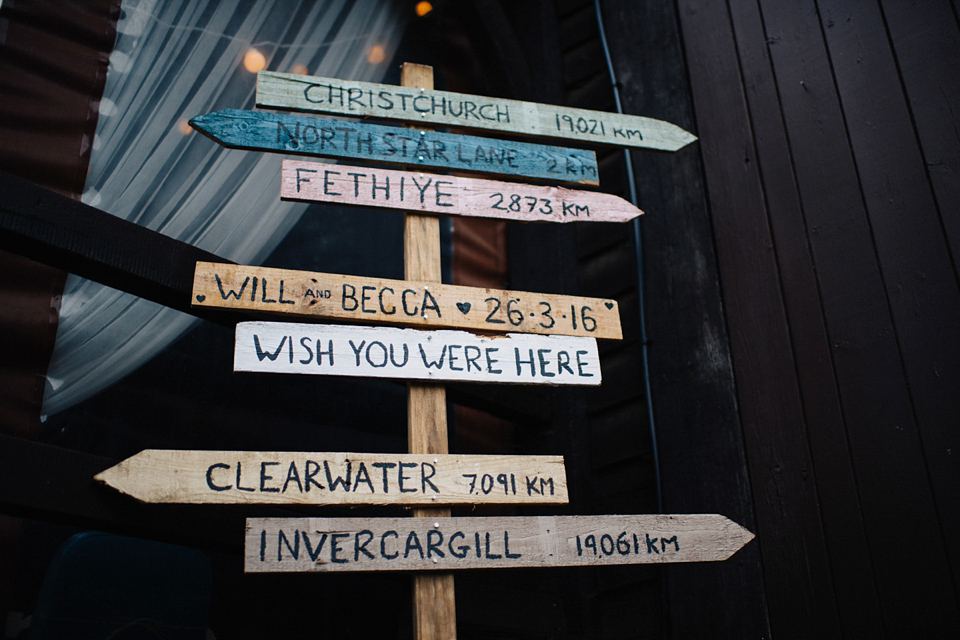 CHRISTCHURCH 19,021 KM
NORTH STAR LANE 2 KM
FETHIYE 2,873 KM
WILL AND BECCA ♥ 26·3·16
WISH YOU WERE HERE
CLEARWATER 7,091 KM
INVERCARGILL 19,061 KM